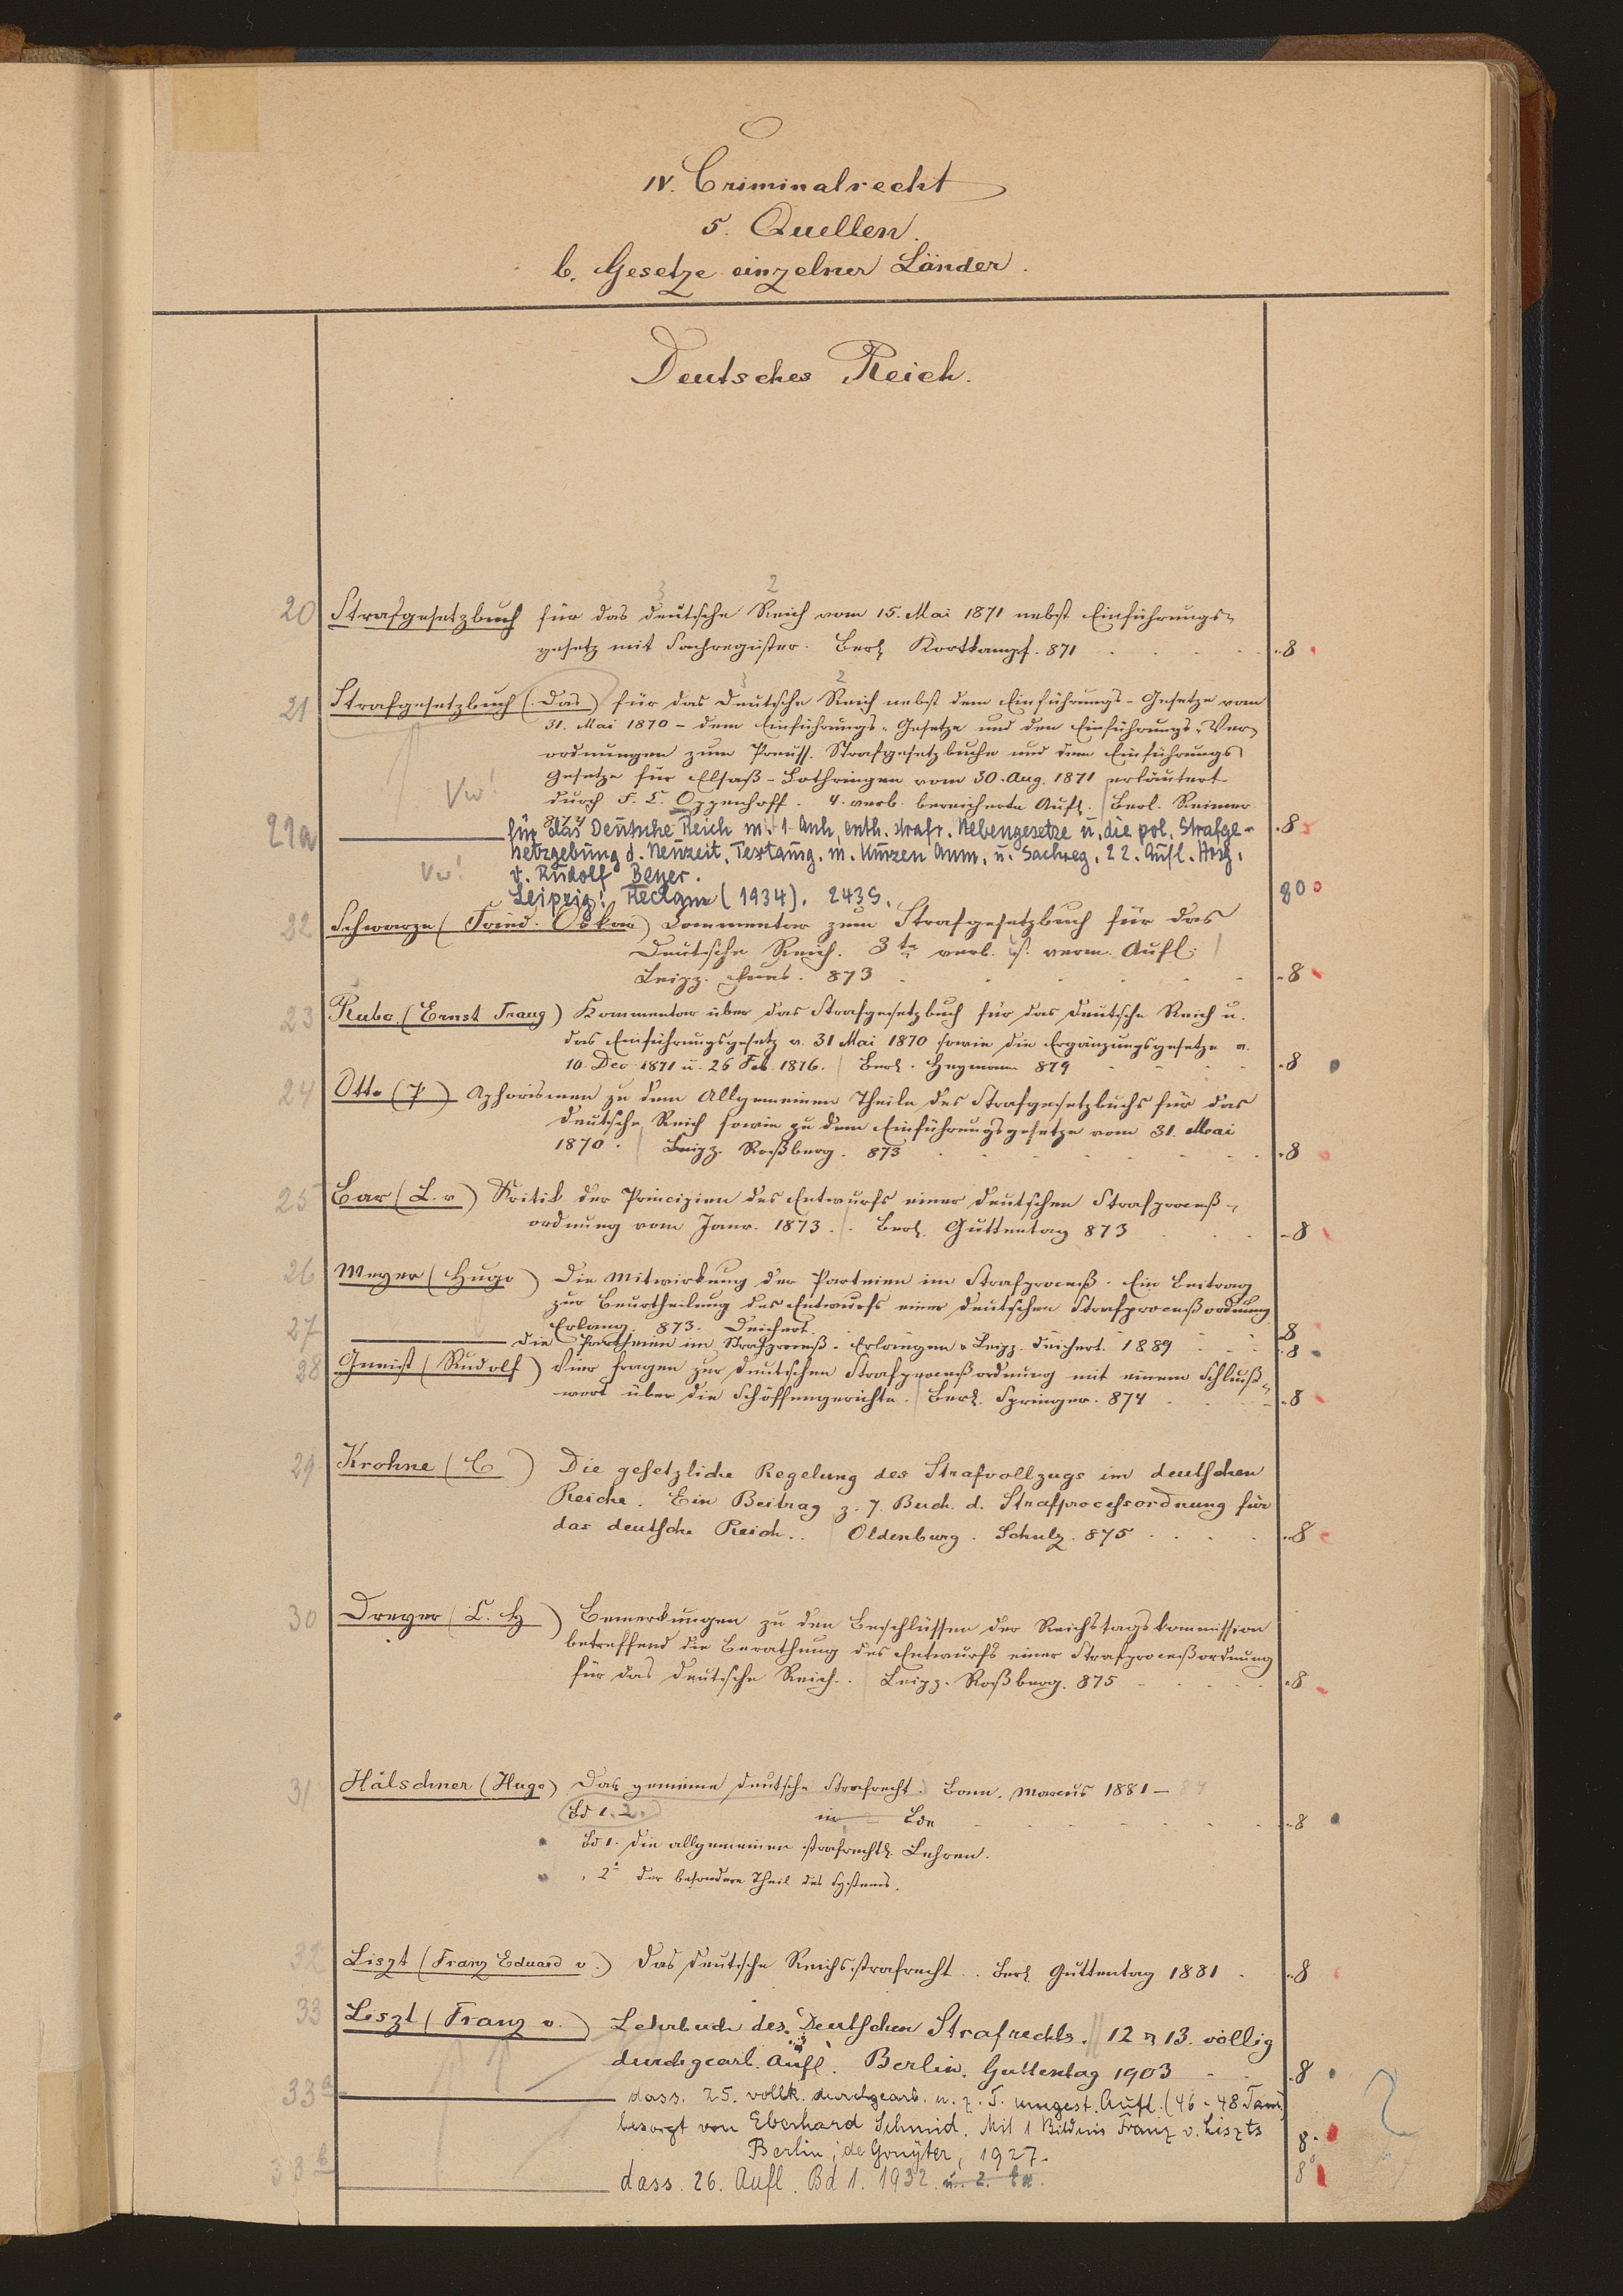 IV. Criminalrecht
5. Quellen.
b. Gesetze einzelner Länder.
Deutsches Reich.
3 2
20 Strafgesetzbuch für das deutsche Reich vom 15. Mai 1871 nebst Einführungs-
gesetz mit Sachregister. Berl. Kortkampf. 871 8
3 2
21 Strafgesetzbuch (Das) für das Deutsche Reich nebst dem Einführungs-Gesetze vom
31. Mai 1870 - dem Einführungs-Gesetze und den Einführungs-Ver-
ordnungen zum Preuss. Strafgesetzbuche und dem Einführungs
Gesetze für Elsaß-Lothringen vom 30. Aug. 1871 erläutert
Vw! durch F. C. Oppenhoff. 4. verb. bereicherte Aufl. Berl. Reimer
874 8
21a für das Deutsche Reich m. 1 Anh. enth. strafr. Nebengesetze u. die pol. Strafge-
setzgebung d. Neuzeit. Textausg. m. kurzen Anm. u. Sachreg. 22. Aufl. Hrsg.
Vw! v. Rudolf Beyer.
Leipzig: Reclam (1934). 243 S. 80
22 Schwarze (Fried. Oskar) Commentar zum Strafgesetzbuch für das
Deutsche Reich. 3te verb. u. verm. Aufl.
Leipz. Fues. 873 8
23 Rubo (Ernst Traug) Kommentar über das Strafgesetzbuch für das deutsche Reich u.
das Einführungsgesetz v. 31 Mai 1870 sowie die Ergänzungsgesetze v.
10. Dec. 1871 u. 26 Feb. 1876. Berl. Heymann 879 8
24 Otto (P) Aphorismen zu dem Allgemeinen Theile des Strafgesetzbuchs für das
deutsche Reich sowie zu dem Einführungsgesetze vom 31. Mai
1870. Leipz. Roßberg. 873 8
25 Bar (L. v) Kritik der Principien des Entwurfs einer deutschen Strafproceß-
ordnung vom Janr. 1873. Berl. Guttentag 873 8
26 Meyer (Hugo) Die Mitwirkung der Parteien im Strafproceß. Ein Beitrag
zur Beurtheilung des Entwurfs einer deutschen Strafproceßordnung
Erlang. 873. Deichert 8
27 Die Parteien im Strafproceß. Erlangen & Leipz. Deichert. 1889 8
28 Gneist (Rudolf) Vier Fragen zur deutschen Strafproceßordnung mit einem Schluß-
wort über die Schöffengerichte. Berl. Springer. 874 8
29 Krohne (C) Die gesetzliche Regelung des Strafvollzugs im deutschen
Reiche. Ein Beitrag z. 7. Buch. d. Strafprocessordnung für
das deutsche Reich. Oldenburg. Schulz. 875 8
30 Dreyer (C. H) Bemerkungen zu den Beschlüssen der Reichstagskommission
betreffend die Berathung des Entwurfs einer Strafproceßordnung
für das deutsche Reich. Leipz. Roßberg. 875 8
31 Hälschner (Hugo) Das gemeine deutsche Strafrecht. Bonn. Marcus 1881-84
Bd 1. 2. in Bdn 8
Bd 1. Die allgemeinen strafrechtl. Lehren.
" 2 der besondere Theil des Systems.
32 Liszt (Franz Eduard v.) Das deutsche Reichsstrafrecht. Berl. Guttentag 1881 8
33 Liszt (Franz v.) Lehrbuch des Deutschen Strafrechts. 12 u 13. völlig
durchgearb. Aufl. Berlin. Guttentag 1903 8
33a dass. 25. vollk. durchgearb. u. z. T. umgest. Aufl. (46-48 Taus.)
besorgt von Eberhard Schmid. Mit 1 Bildnis Franz v. Liszts
Berlin; de Gruyter, 1927. 8
33b dass. 26. Aufl. Bd 1. 1932. 8